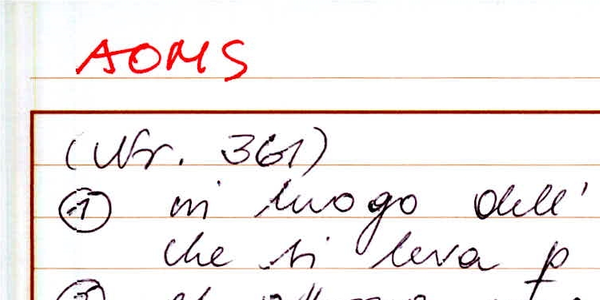 AOMS
(Nr. 361)
① in luogo dell'
che si leva p
②